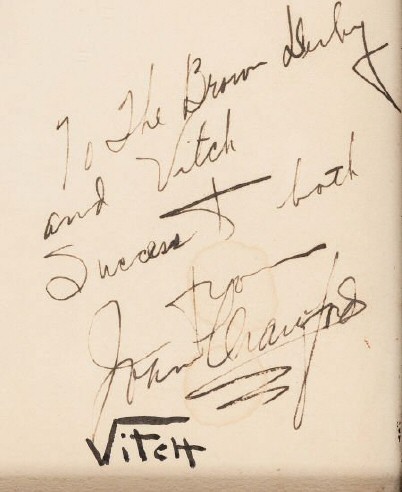 To The Brown Derby
and Vitch
Success to both
from
Joan Crawford
VITCH